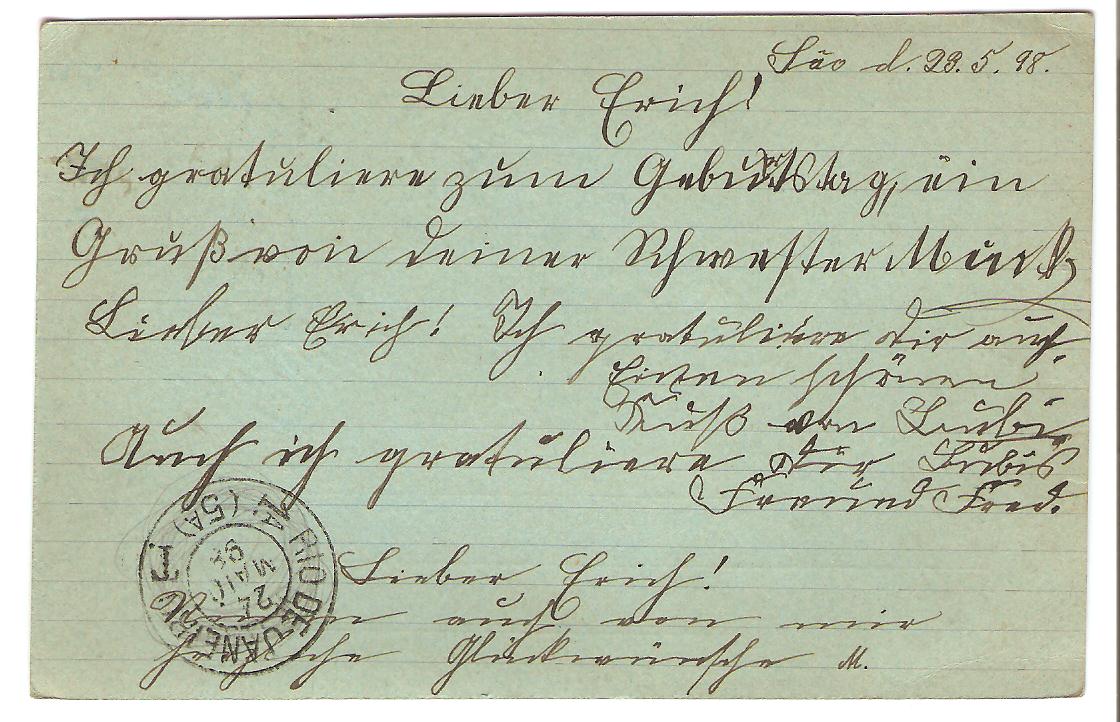 São d. 23.5.98.
Lieber Erich!
Ich gratuliere zum Geburtstag, ein
Gruß von deiner Schwester
Lieber Erich! Ich gratuliere dir auch.
Einen schönen
Kuß von Bubi
Auch ich gratuliere dir Bubis
Freund Fred.
Lieber Erich!
auch von mir
herzliche Glückwünsche M.
RIO DE JANEIRO
(5A)
24
MAIO
98